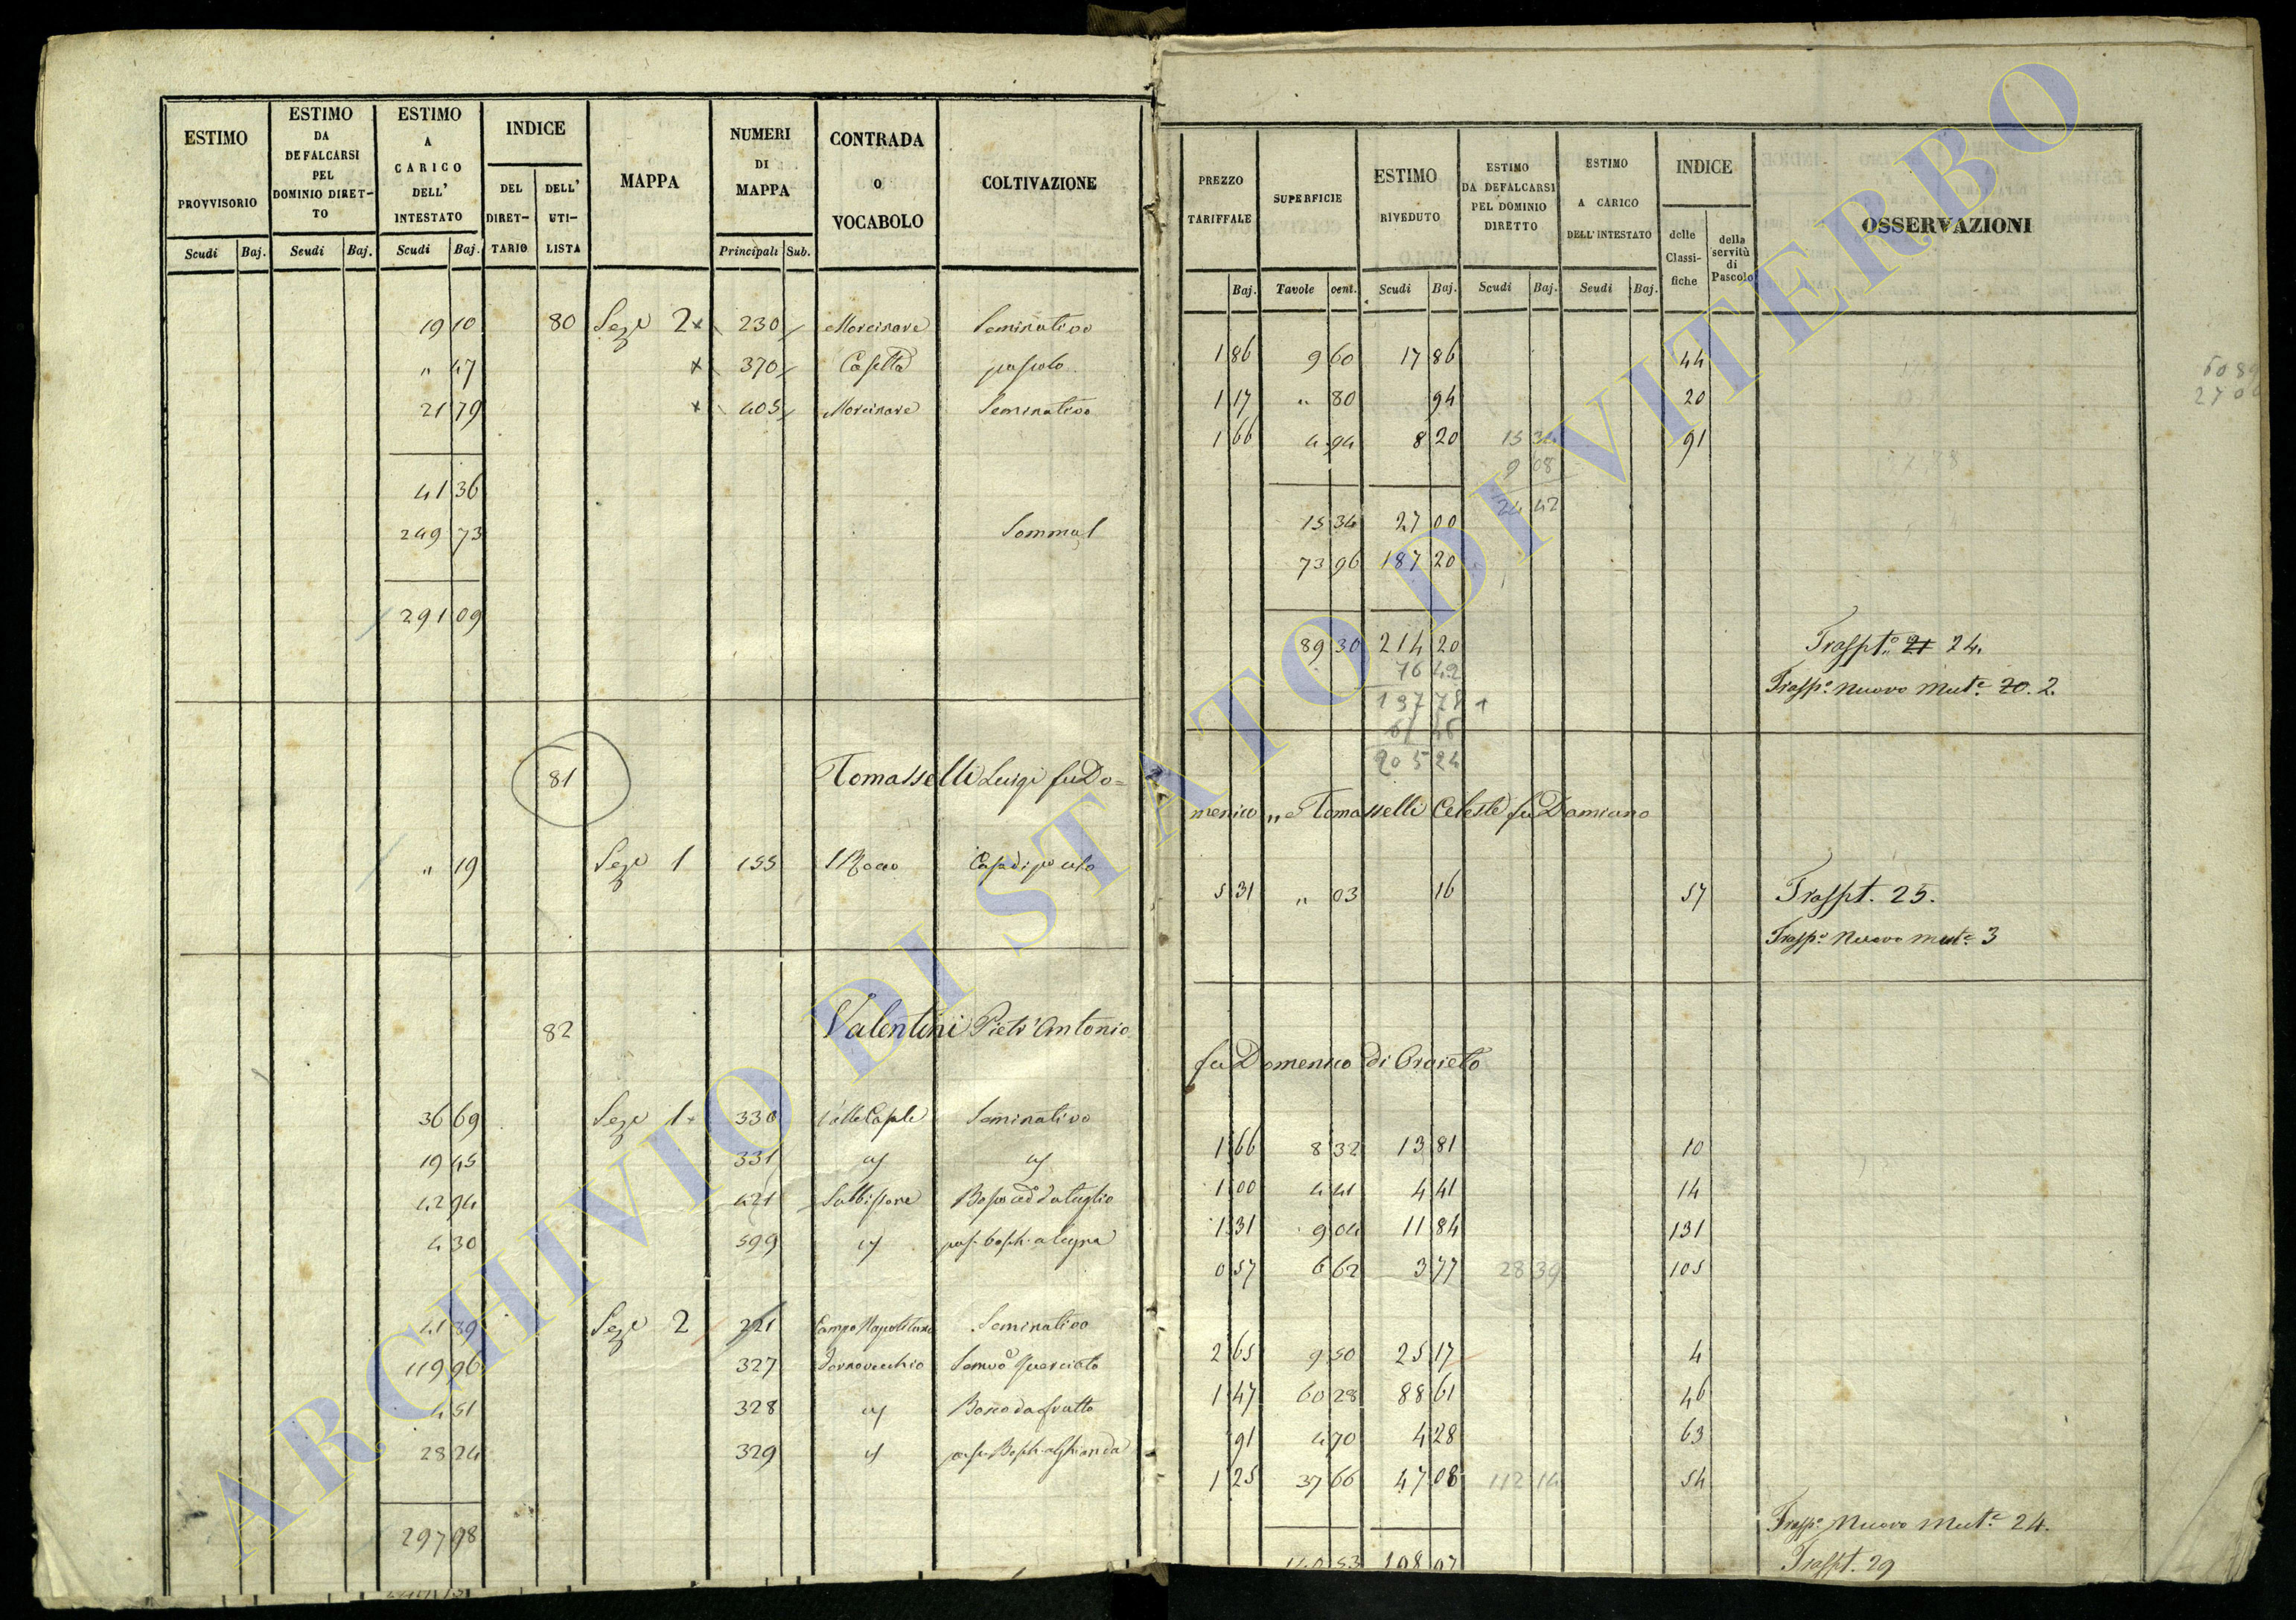 ESTIMO PROVVISORIO Scudi Baj.
ESTIMO DA DEFALCARSI PEL DOMINIO DIRETTO Scudi Baj.
ESTIMO A CARICO DELL' INTESTATO Scudi Baj.
INDICE DEL DIRETTARIO DELL' UTILISTA
MAPPA
NUMERI DI MAPPA Principali Sub.
CONTRADA O VOCABOLO
COLTIVAZIONE
PREZZO TARIFFALE Baj.
SUPERFICIE Tavole cent.
ESTIMO RIVEDUTO Scudi Baj.
ESTIMO DA DEFALCARSI PEL DOMINIO DIRETTO Scudi Baj.
ESTIMO A CARICO DELL'INTESTATO Scudi Baj.
INDICE delle Classifiche della servitù di Pascolo
OSSERVAZIONI
19 10 80 Seze 2 230 Seminativo
" 47 370 Casetta pascolo
21 79 405 Seminativo
41 36
249 73 Somma
291 09
1 86 9 60 17 86 44
1 17 " 80 94 20
1 66 4 94 8 20 15 34 91
9 08
24 42
15 34 27 00
73 96 187 20
89 30 214 20 Traspt.o 21 24.
76 42 Trasp.o nuovo mut.e 20. 2.
137 78 +
205 24
81 Tomasselli Luigi fu Do=
menico " e Tomasselli Celeste fu Damiano
" 19 Seze 1 155 S Rocco
5 31 " 03 16 57 Traspt. 25.
Trasp.o Nuovo mut.e 3
82 Valentini Pietr'Antonio
fu Domenico di Orvieto
36 69 Seze 1 330 Seminativo
19 45 331
42 94 421
4 30 599
41 39 Seze 2 221 Campo Napolitano Seminativo
119 96 327 Fornovecchio Semvo Querciato
4 51 328 Bosco da frutto
28 24 329
297 98
1 66 8 32 13 81 10
1 00 4 41 4 41 14
1 31 9 04 11 84 131
0 57 6 62 3 77 28 39 105
2 65 9 50 25 17 4
1 47 60 28 88 61 46
91 4 70 4 28 63
1 25 37 66 47 08 112 14 54
Trasp.o Nuovo mut.e 24.
140 53 198 97 Traspt. 29
ARCHIVIO DI STATO DI VITERBO